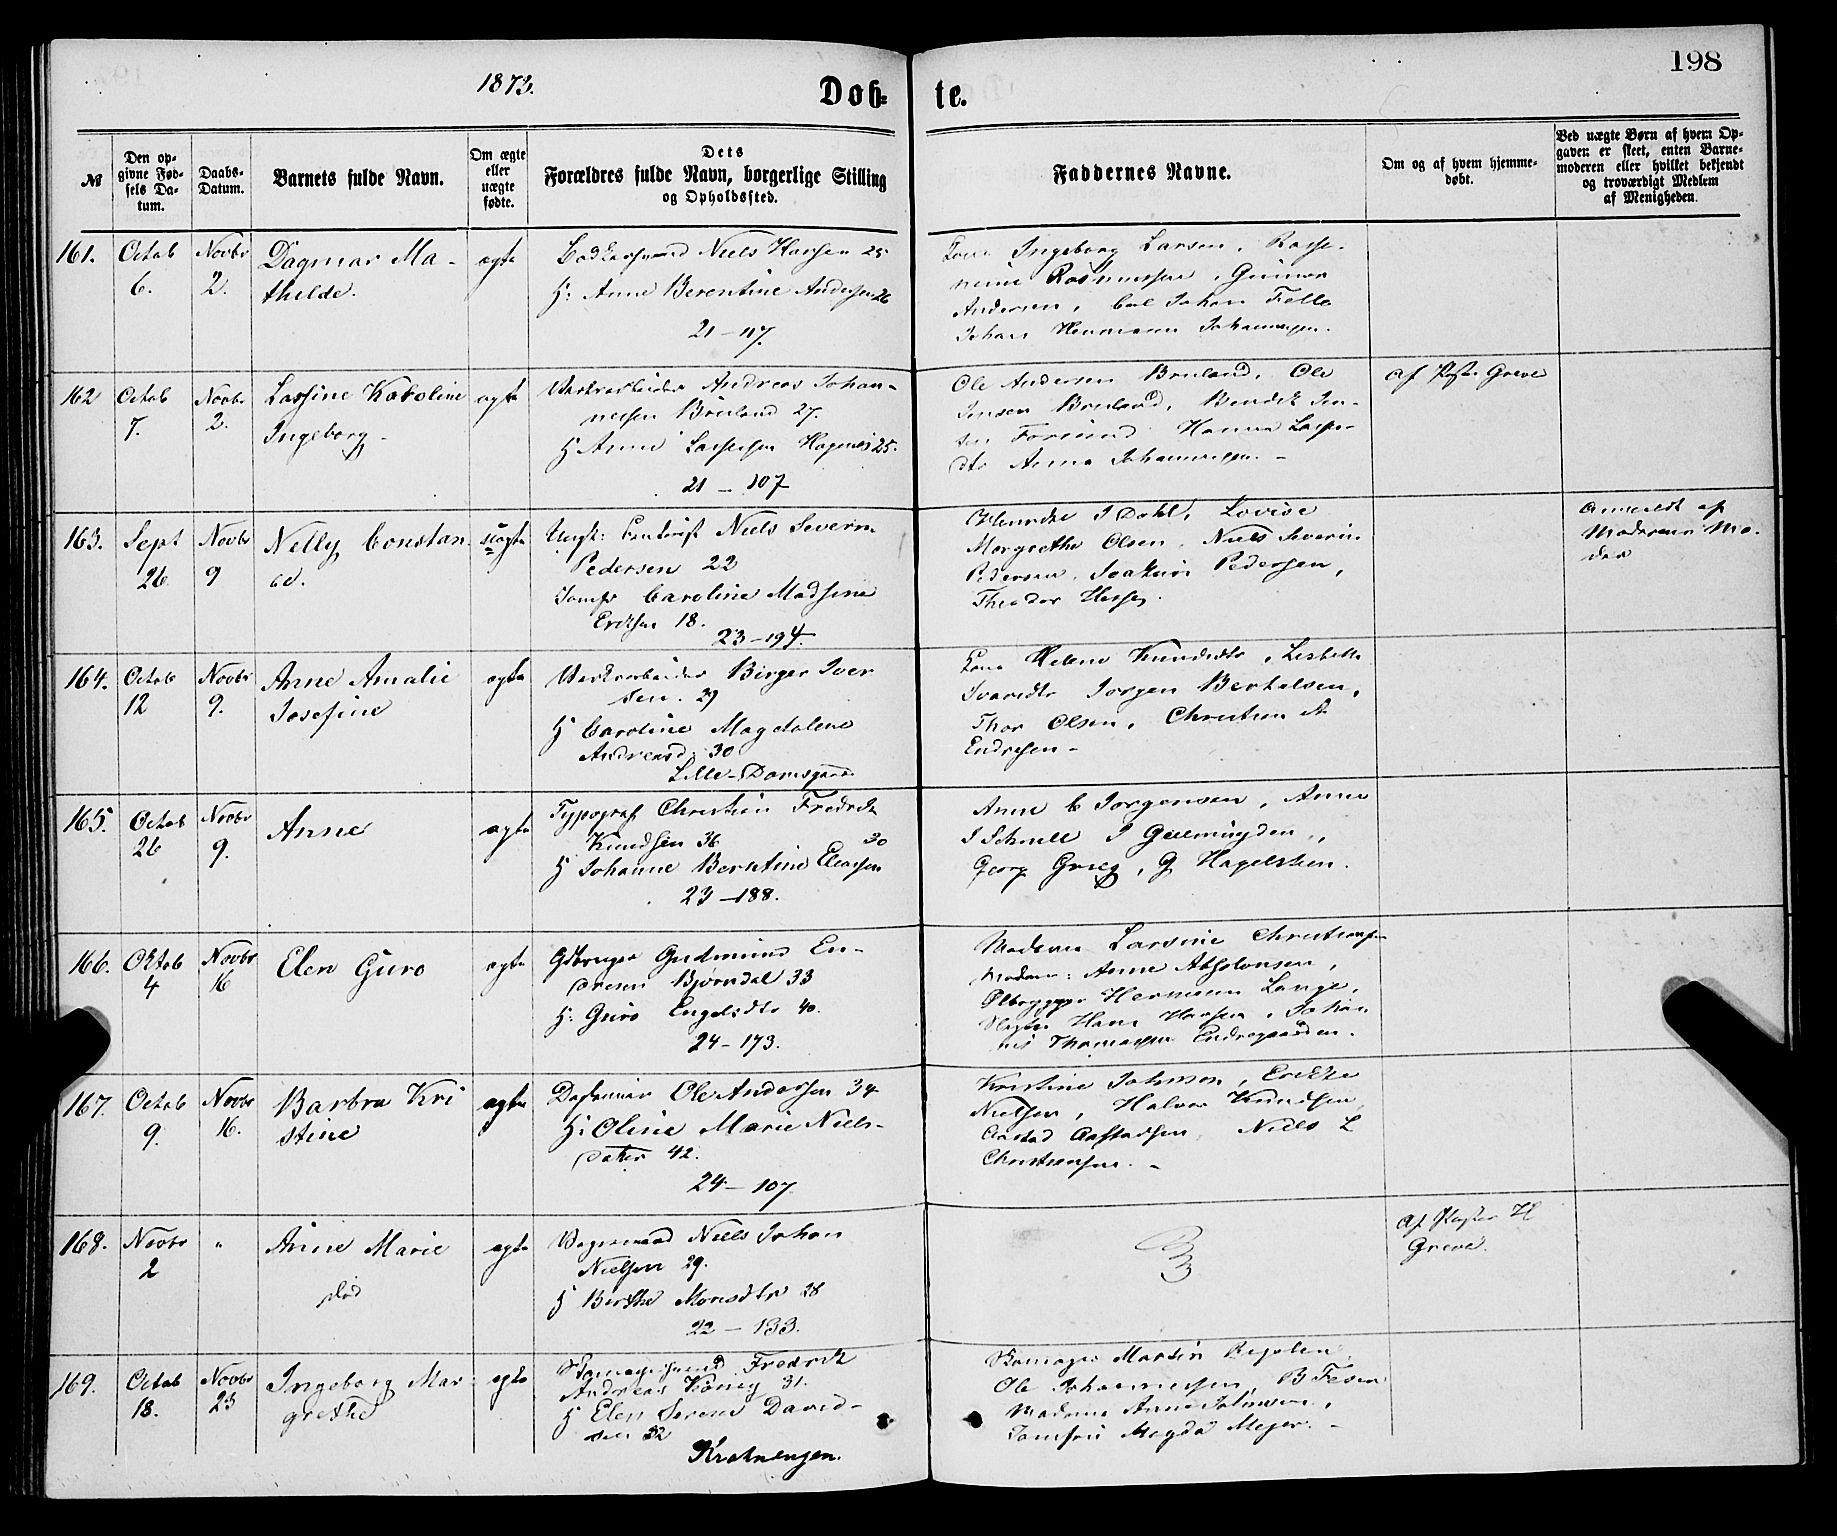 198
1873.
Døb-
te.
№
Den op-
givne Fød-
sels Da-
tum.
Daabs-
Datum.
Barnets fulde Navn.
Om ægte
eller
uægte
fødte.
Dets
Forældres fulde Navn, borgerlige Stilling
og Opholdssted.
Faddernes Navne.
Om og af hvem hjemme-
døbt.
Ved uægte Børn af hvem Op-
gaven er skeet, enten Barne-
moderen eller hvilket bekjendt
og troværdigt Medlem
af Menigheden.
161.
Octob
6.
Novbr
2.
Dagmar Ma-
thilde.
ægte
Niels Hansen 25
H: Anne Berentine Andersen 26
21-117.
Ingeborg Larsen, Rasse-
mine Rasmussen, Gunnar
Andersen, Carl Johan Felle
Johan Hermann Johannesen.
162
Octob
7.
Novbr
2.
Lassine Karoline
Ingeborg-
ægte
Værkarbeider Andreas Johan-
nessen Bruland 27.
H Anne Lassesen Hagenæs 25.
21-107
Ole Andersen Bruland, Ole
Jensen Bruland, Bendik Jen-
sen Hanna Lasse-
dtr Anna Johannesen.-
af Greve
163.
Sept
26
Novbr
9
Nelly Constan
ce.
uægte
Ungk: Niels Severin
Pedersen 22
Jomfr Caroline Madsine
Eriksen 18.
23-194.
Henrikke J Dahl, Lovise
Margrethe Olsen, Niels Severin
Pedersen, Joakim Pedersen,
Theodor
Anmeldt af
Moderens Mo-
der
164.
Octob
12
Novbr
9.
Anne Amalie
Josefine
ægte
Værkarbeider Birger Iver
sen. 29
H Caroline Magdalene
Andreasd: 30
Lille-Damsgaard
Helene Knudsdtr, Lisbeth
Jørgen Bertelsen,
Thor Olsen, Christian A
Endresen-
165.
Octob
26
Novbr
9.
Anne
ægte
Typograf Christian Fredrik
Knudsen 36
30
H Johanne Berntine Eliassen
23-188.
Anne C Jørgensen, Anna
J Schnell J
Georg Grieg, G Hagelsteen.
166.
Oktob
4
Novbr
16
Elen Guro
ægte
Gdbruger Gudmund En-
dresen Bjørndal 33
H: Guro Engelsdtr 40.
24-173.
Madame Larsine Christensen
Madam: Anne Absalonsen,
Ølbrygger Hermann Lange,
Hans Hansen, Johan
nes Thomassen Endregaarden.
167.
Octob
9.
Novbr
16.
Barbra Kri
stine
ægte
Ole Andersen 34
H: Oline Marie Niels-
dater 42.
24-107
Kristine Johnson, Erikke
Nielsen, Halvor Knudsen
Aastad Aastadsen, Niels L
Christensen.-
168.
Novbr
2
"
Anne Marie
død
ægte
Niels Johan
Nielsen 29.
H Berthe Monsdtr 28
22-133.
Af H
Greve.
169.
Octob
18.
Novbr
23
Ingeborg Mar-
grethe
ægte
Fredrik
Andreas König 31.
H Elen Serene David-
sen 32
Skomager Martin
Ole Johannessen, B
Madame Anne Johnsen,
Jomfru Magda Meyer.-